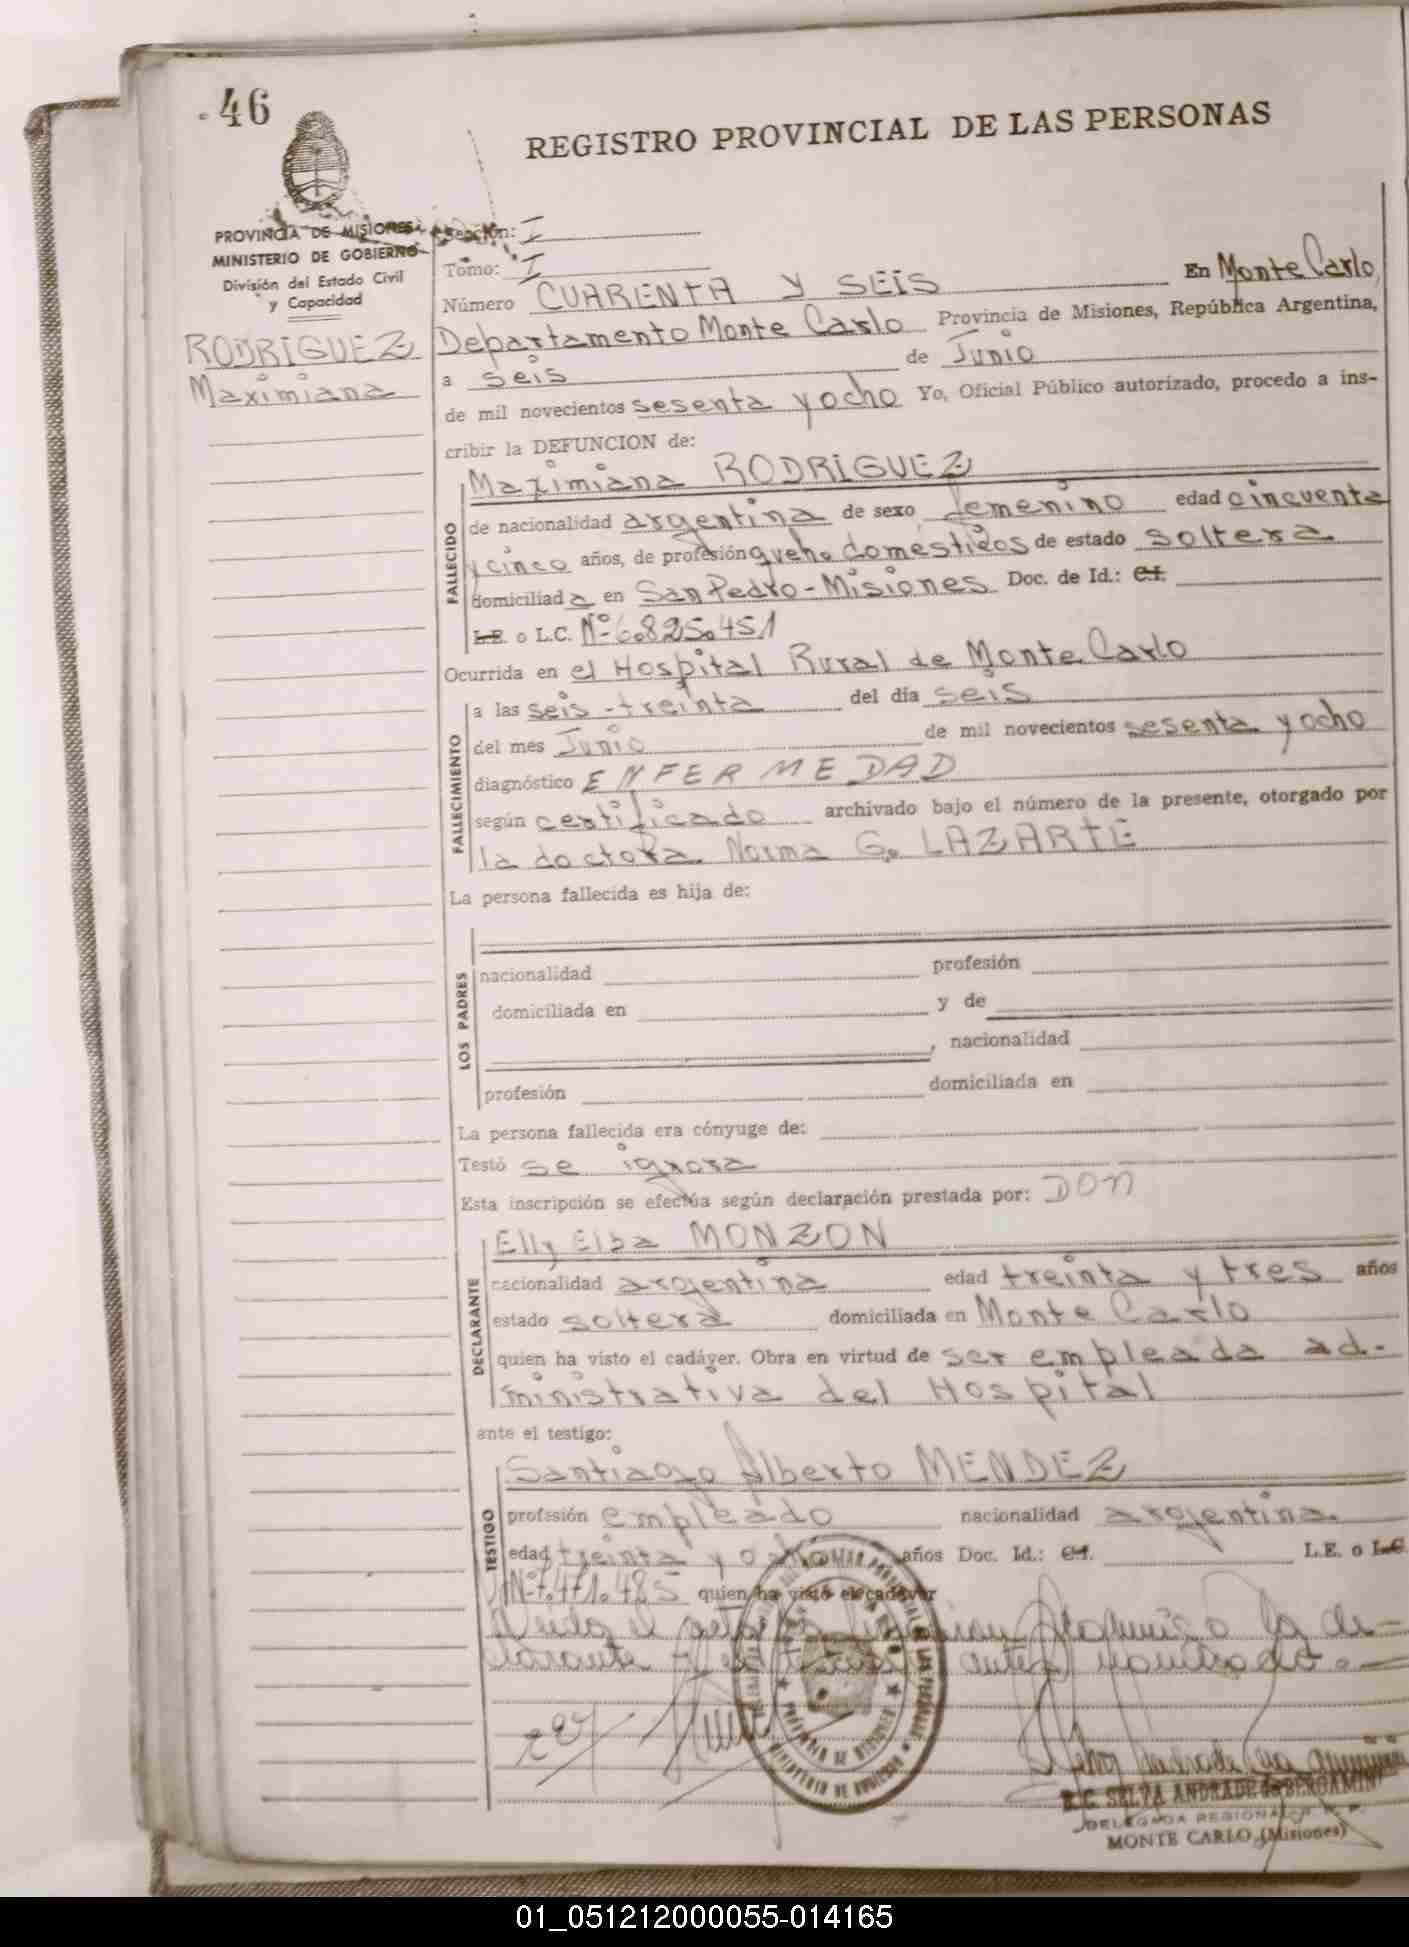 46
REGISTRO PROVINCIAL DE LAS PERSONAS
PROVINCIA DE MISIONES
MINISTERIO DE GOBIERNO
División del Estado Civil
y Capacidad
RODRIGUEZ
Maximiana
Sección: I
Tomo: I
Número CUARENTA Y SEIS En Monte Carlo,
Departamento Monte Carlo Provincia de Misiones, República Argentina,
a seis de Junio
de mil novecientos sesenta y ocho Yo, Oficial Público autorizado, procedo a ins-
cribir la DEFUNCION de:
FALLECIDO
Maximiana RODRIGUEZ
de nacionalidad argentina de sexo femenino edad cincuenta
y cinco años, de profesión queh. domesticos de estado soltera
domiciliada en San Pedro-Misiones Doc. de Id.: C.I.
L.E. o L.C. Nº 6.825.451
Ocurrida en el Hospital Rural de Monte Carlo
FALLECIMIENTO
a las seis-treinta del día seis
del mes Junio de mil novecientos sesenta y ocho
diagnóstico ENFERMEDAD
según certificado archivado bajo el número de la presente, otorgado por
la doctora Norma G. LAZARTE
La persona fallecida es hija de:
LOS PADRES
nacionalidad profesión
domiciliada en y de
, nacionalidad
profesión domiciliada en
La persona fallecida era cónyuge de:
Testó se ignora
Esta inscripción se efectúa según declaración prestada por: DON
DECLARANTE
Elly Elba MONZON
nacionalidad argentina edad treinta y tres años
estado soltera domiciliada en Monte Carlo
quien ha visto el cadáver. Obra en virtud de ser empleada ad-
ministrativa del Hospital
ante el testigo:
TESTIGO
Santiago Alberto MENDEZ
profesión empleado nacionalidad argentina
edad treinta y ocho años Doc. Id.: C.I. L.E. o L.C.
Nº 7.471.485 quien ha visto el cadáver
Leida el acta la firman conmigo la de-
clarante y el testigo antes nombrado.
PROVINCIA DE MISIONES
MINISTERIO DE GOBIERNO
SELVA ANDRADE de BERGAMIN
DELEGADA REGIONAL
MONTE CARLO (Misiones)
01_051212000055-014165